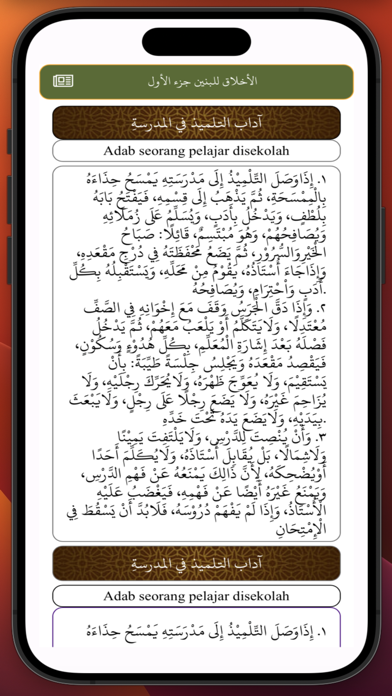 الأخلاق للبنين جزء الأول
آداب التلميذ في المدرسة
Adab seorang pelajar disekolah
١. إِذَاوَصَلَ التِّلْمِيْذُ إِلَى مَدْرَسَتِهِ يَمْسَحُ حِذَاءَهُ
بِالْمِمْسَحَةِ، ثُمَّ يَذْهَبُ إِلَى قِسْمِهِ، فَيَفْتَحُ بَابَهُ
بِلُطْفٍ، وَيَدْخُلُ بِأَدَبٍ، وَيُسَلِّمُ عَلَى زُمَلَائِهِ
وَيُصَافِحُهُمْ، وَهُوَ مُبْتَسِمٌ، قَائِلًا: صَبَاحُ
الْخَيْرِوَالسُّرُوْرِ، ثُمَّ يَضَعُ مِحْفَظَتَهُ فِي دُرْجِ مَقْعَدِهِ،
وَإِذَاجَاءَ أُسْتَاذُهُ، يَقُوْمُ مِنْ مَحَلِّهِ، وَيَسْتَقْبِلُهُ بِكُلِّ
أَدَبٍ وَاحْتِرَامٍ، وَيُصَافِحُهُ.
٢. وَإِذَا دَقَّ الْجَرَسُ وَقَفَ مَعَ إِخْوَانِهِ فِي الصَّفِّ
مُعْتَدِلًا، وَلَايَتَكَلَّمُ أَوْ يَلْعَبُ مَعَهُمْ، ثُمَّ يَدْخُلُ
فَصْلَهُ بَعْدَ إِشَارَةِ الْمُعَلِّمِ، بِكُلِّ هُدُوْءٍ وَسُكُوْنٍ،
فَيَقْصِدُ مَقْعَدَهُ وَيَجْلِسُ جِلْسَةً طَيِّبَةً: بِأَنْ
يَسْتَقِيْمَ، وَلَا يُعَوِّجَ ظَهْرَهُ، وَلَايُحَرِّكَ رِجْلَيْهِ، وَلَا
يُزَاحِمَ غَيْرَهُ، وَلَا يَضَعَ رِجْلًا عَلَى رِجْلٍ، وَلَايَبْعَثَ
بِيَدَيْهِ، وَلَايَضَعَ يَدَهُ تَحْتَ خَدِّهِ.
٣. وَأَنْ يُنْصِتَ لِلدَّرْسِ، وَلَايَلْتَفِتَ يَمِيْنًا
وَلَاشِمَالًا، بَلْ يُقَابِلَ أُسْتَاذَهُ، وَلَايُكَلِّمَ أَحَدًا
أَوْيُضْحِكَهُ، لِأَنَّ ذَالِكَ يَمْنَعُهُ عَنْ فَهْمِ الدَّرْسِ،
وَيَمْنَعُ غَيْرَهُ أَيْضًا عَنْ فَهْمِهِ، فَيَغْضَبُ عَلَيْهِ
الْأُسْتَاذُ، وَإِذَا لَمْ يَفْهَمْ دُرُوْسَهُ، فَلَابُدَّ أَنْ يَسْقُطَ فِي
الْإِمْتِحَانِ
آداب التلميذ في المدرسة
Adab seorang pelajar disekolah
١. إِذَاوَصَلَ التِّلْمِيْذُ إِلَى مَدْرَسَتِهِ يَمْسَحُ حِذَاءَهُ